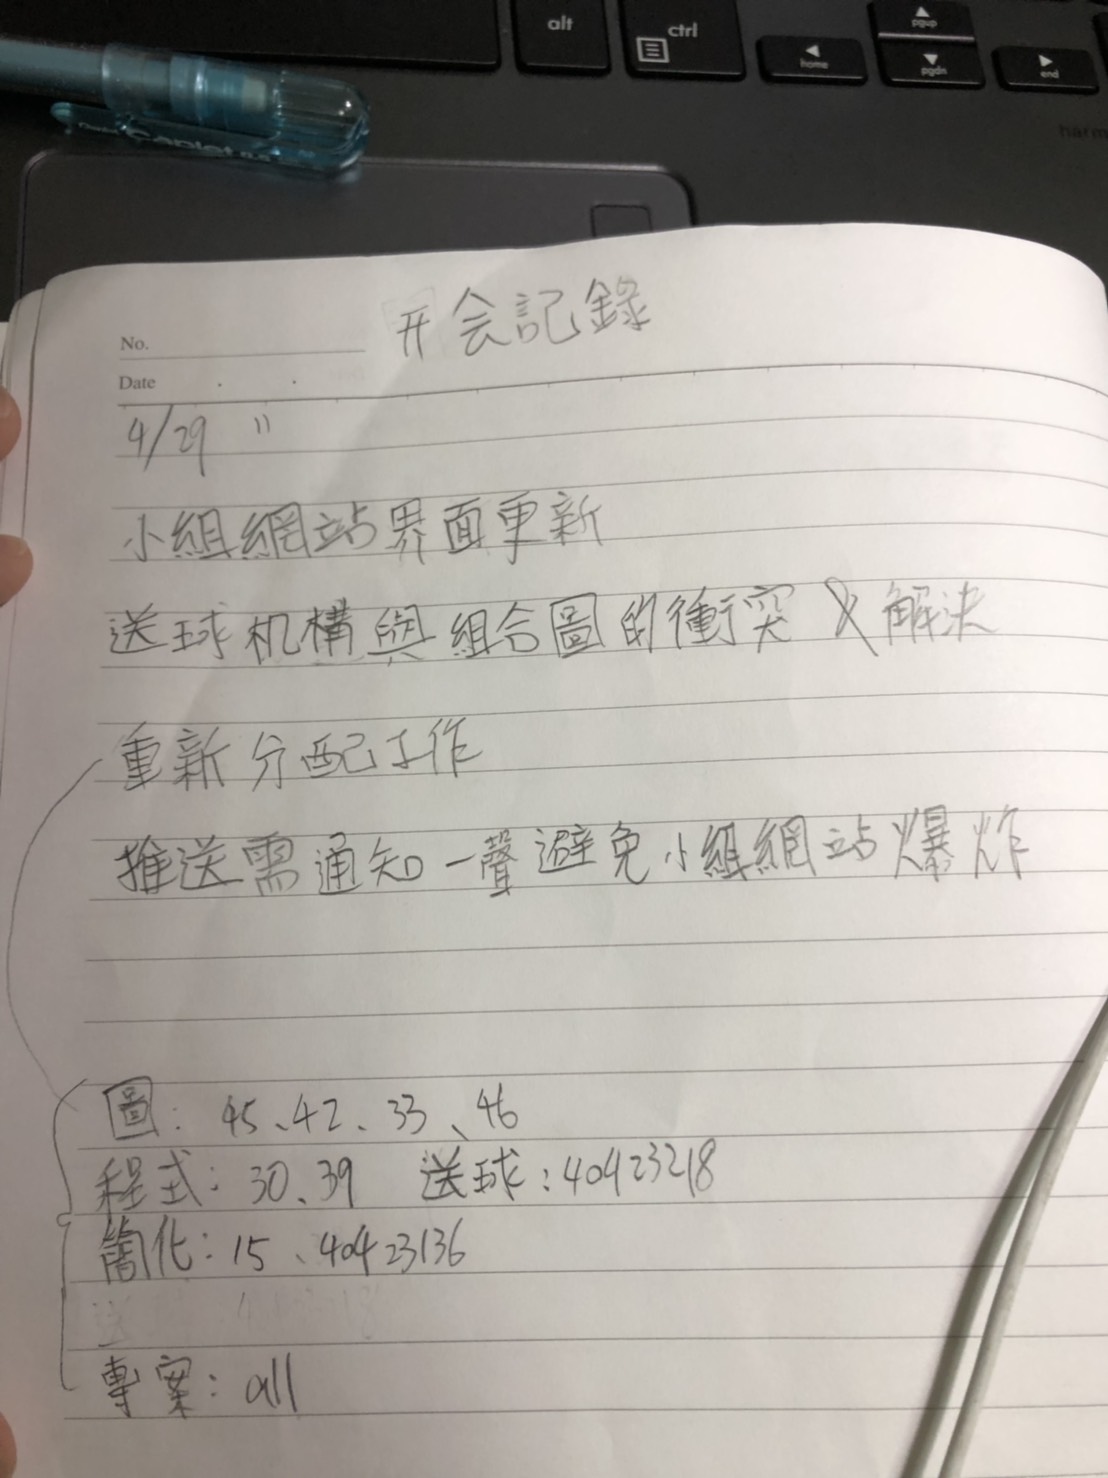 alt
ctrl
pgup
home
pgdn
end
harm
开会記錄
No.
Date
4/29 "
小組網站界面更新
送球机構與組合圖的衝突 & 解決
重新分配工作
推送需通知一聲避免小組網站爆炸
圖: 45、42、33、46
程式: 30、39 送球: 40423218
簡化: 15、40423136
專案: all